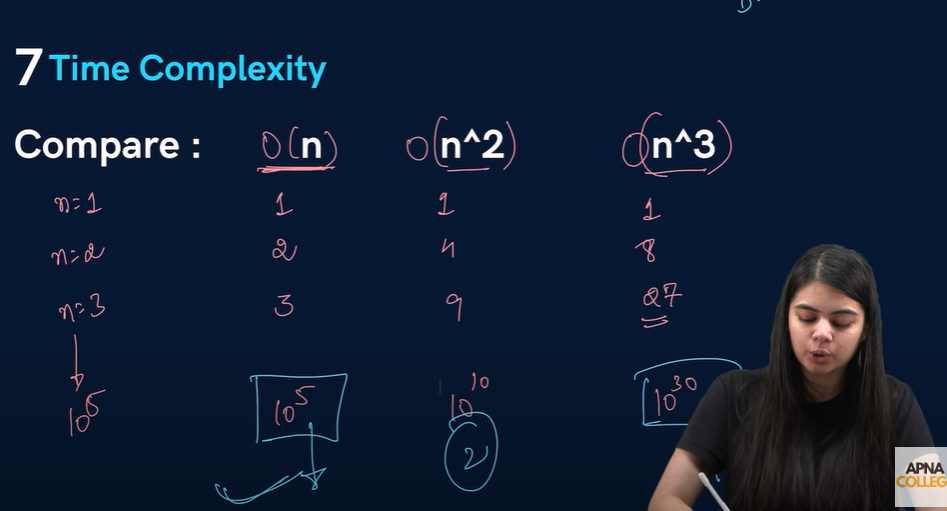 7 Time Complexity
Compare : O(n) O(n^2) O(n^3)
n=1 1 1 1
n=2 2 4 8
n=3 3 9 27
10^5 10^5 10^10 10^30
2
APNA
COLLEG